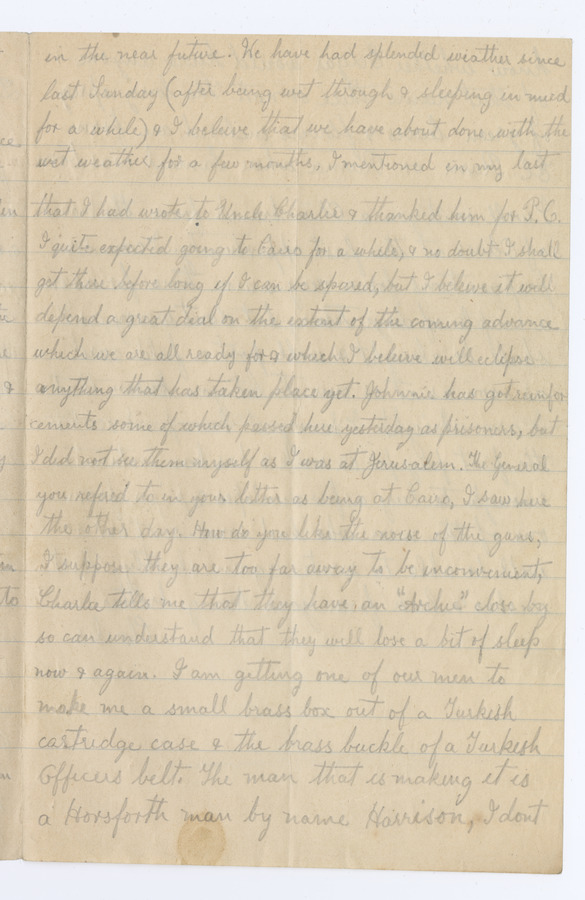 in the near future. We have had splended weather since
last Sunday (after being wet through & sleeping in mud
for a while) & I beleive that we have about done with the
wet weather for a few months, I mentioned in my last
that I had wrote to Uncle Charlie & thanked him for P.C.
I quite expected going to Cairo for a while, & no doubt I shall
get there before long if I can be spared, but I beleive it will
depend a great deal on the extent of the coming advance
which we are all ready for & which I beleive will eclipse
anything that has taken place yet. Johnnie has got reinfor
cements some of which passed here yesterday as prisoners, but
I did not see them myself as I was at Jerusalem. The General
you refered to in your letter as being at Cairo, I saw here
the other day. How do you like the noise of the guns,
I suppose they are too far away to be inconvenient,
Charlie tells me that they have an "Archie" close by
so can understand that they will lose a bit of sleep
now & again. I am getting one of our men to
make me a small brass box out of a Turkish
cartridge case & the brass buckle of a Turkish
Officers belt. The man that is making it is
a Horsforth man by name Harrison, I dont